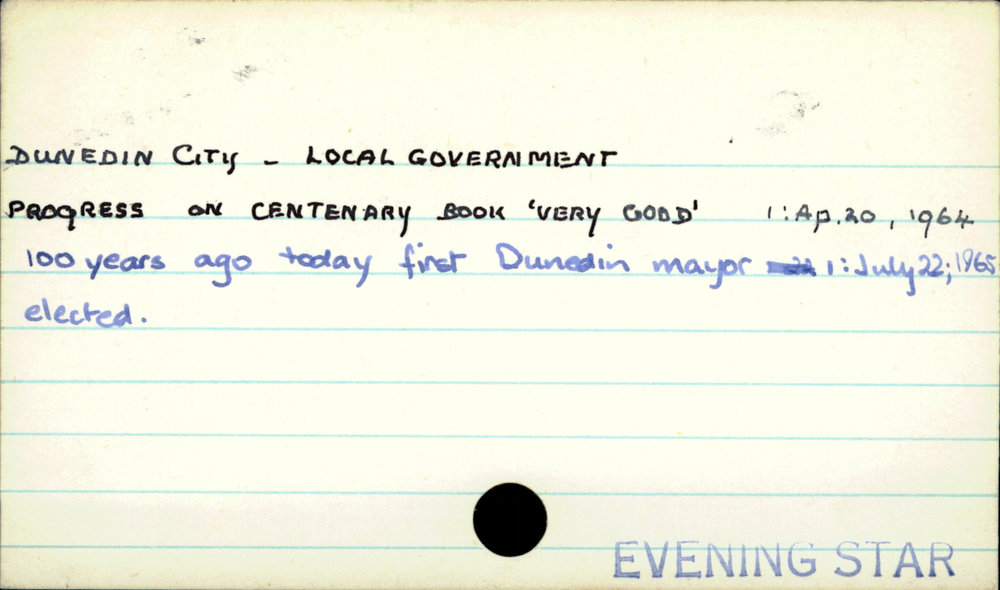 DUNEDIN CITY - LOCAL GOVERNMENT
PROGRESS ON CENTENARY BOOK 'VERY GOOD' 1:Ap.20, 1964
100 years ago today first Dunedin mayor 1:July 22; 1965
elected.
EVENING STAR